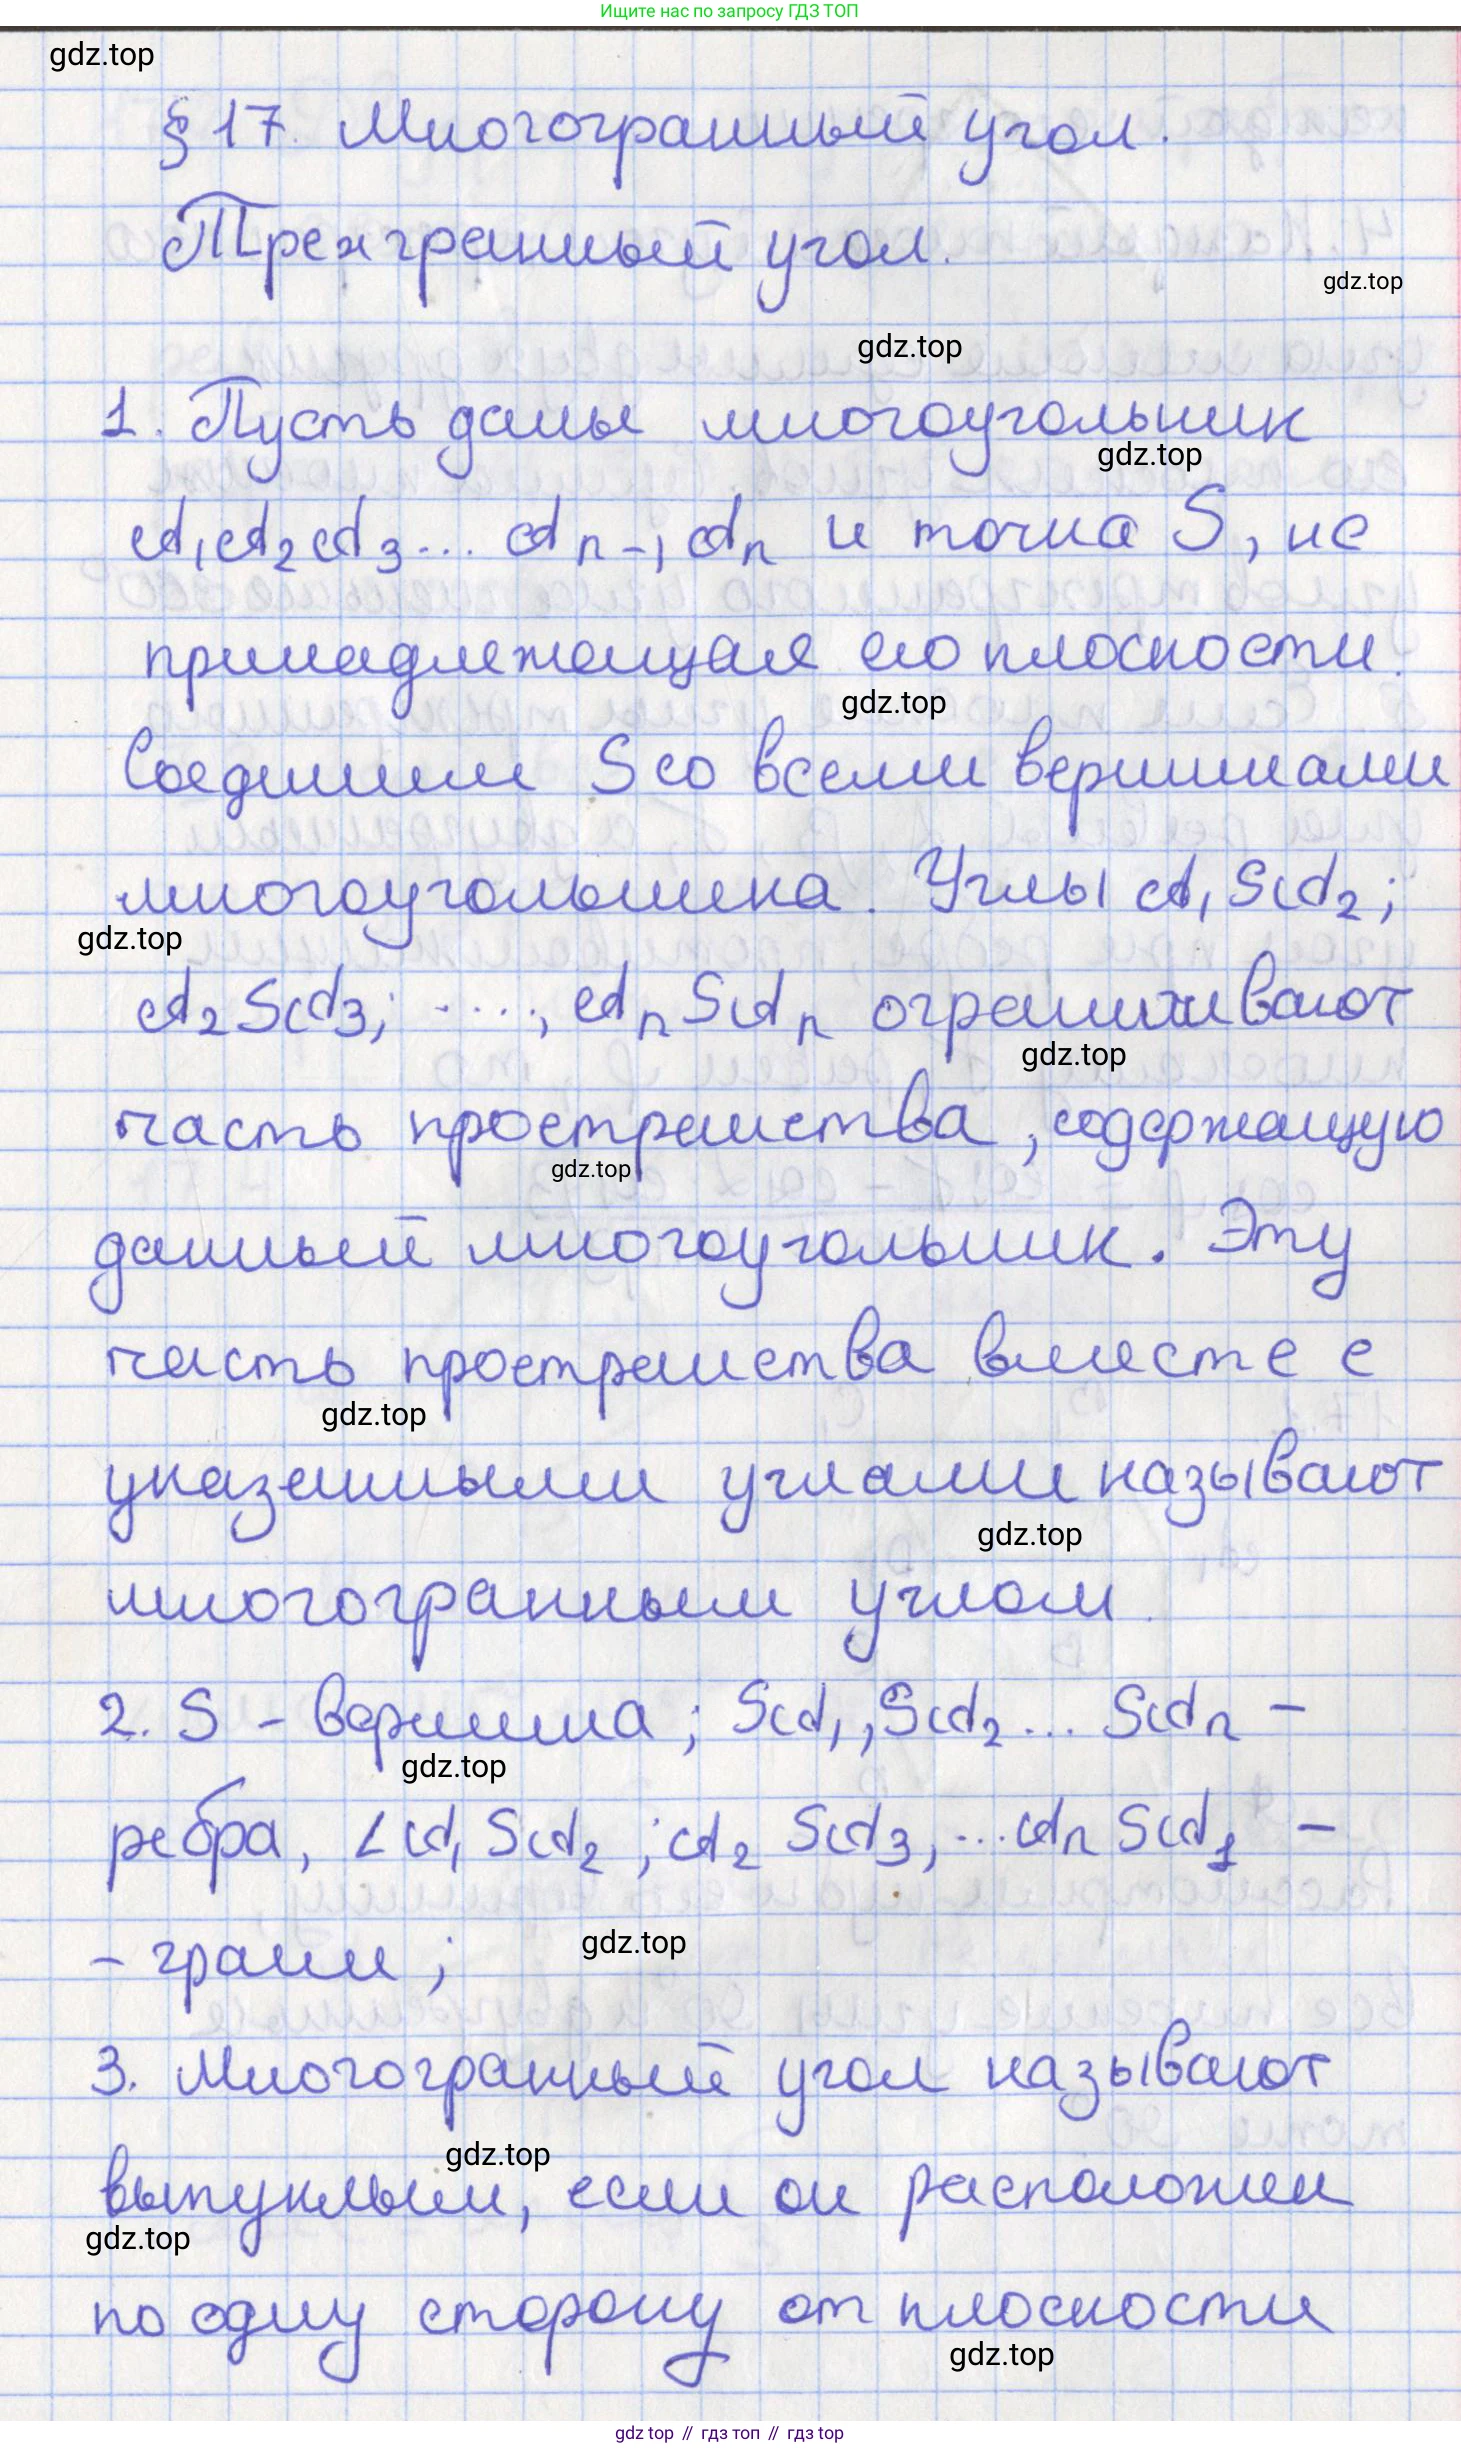 Ищите нас по запросу ГДЗ ТОП
gdz.top
§ 17. Многогранный угол.
Трехгранный угол.
gdz.top
gdz.top
1. Пусть даны многоугольник
gdz.top
A₁A₂A₃... Aₙ₋₁Aₙ и точка S, не
принадлежащая его плоскости.
gdz.top
Соединим S со всеми вершинами
многоугольника. Углы A₁SA₂;
gdz.top
A₂SA₃; ...., AₙSAₙ ограничивают
gdz.top
часть пространства, содержащую
gdz.top
данный многоугольник. Эту
часть пространства вместе с
gdz.top
указанными углами называют
gdz.top
многогранным углом.
2. S - вершина; SA₁, SA₂... SAₙ -
gdz.top
ребра, ∠A₁SA₂; A₂SA₃, ...AₙSA₁ -
- грани;
gdz.top
3. Многогранный угол называют
gdz.top
выпуклым, если он расположен
gdz.top
по одну сторону от плоскости
gdz.top
gdz top // гдз топ // гдз top